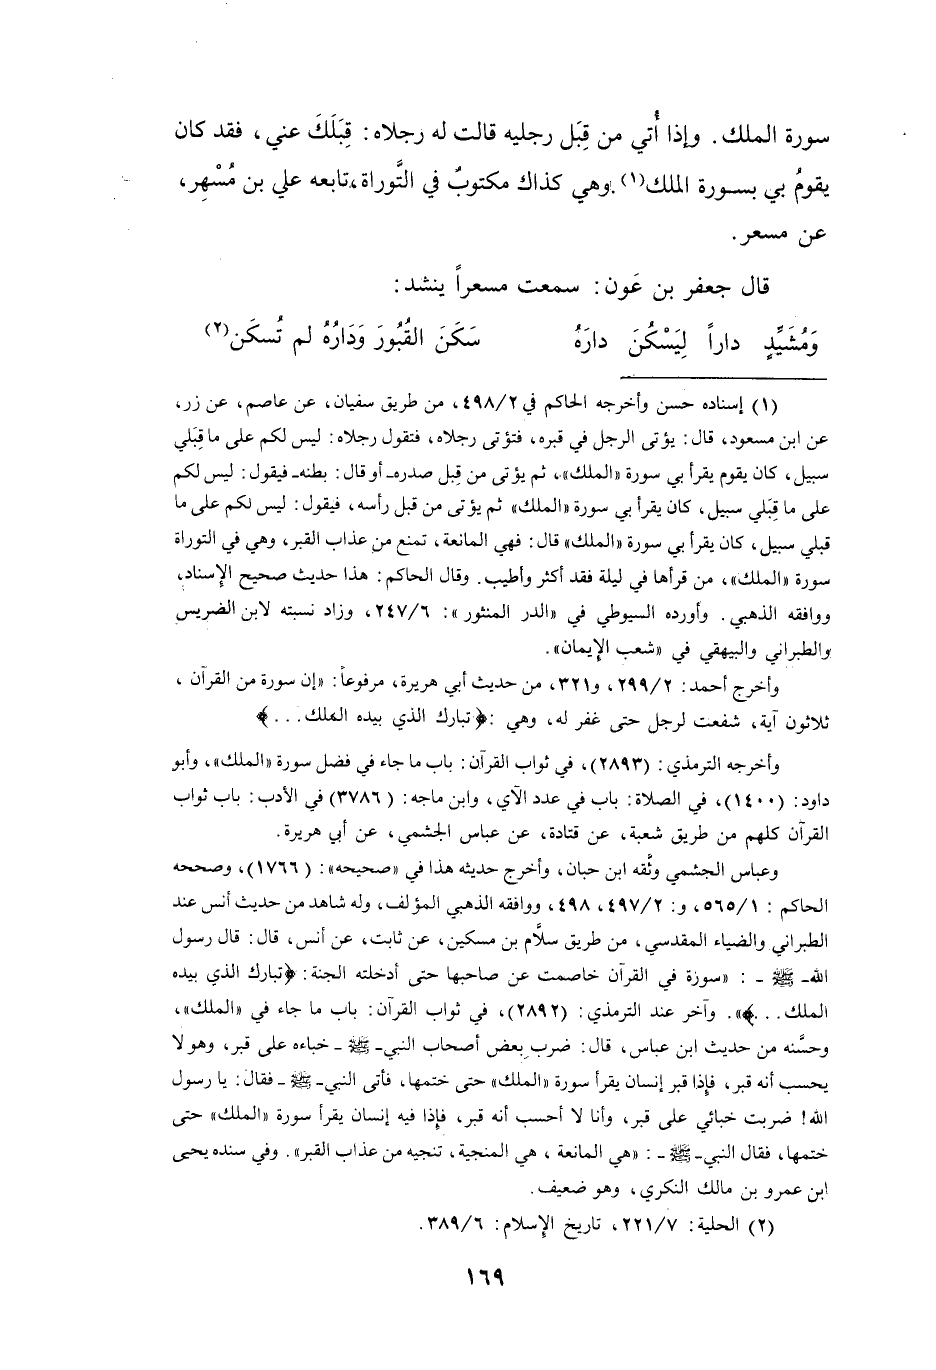 سورة الملك. وإذا أُتي من قِبَل رجليه قالت له رجلاه: قِبَلَكَ عني، فقد كان
يقومُ بي بسورة الملك(١). وهي كذاك مكتوبٌ في التَّوراة، تابعه علي بن مُسْهِر،
عن مسعر.
قال جعفر بن عَون: سمعت مسعراً ينشد:
وَمُشَيِّدٍ داراً لِيَسْكُنَ دارَهُ سَكَنَ القُبُورَ وَدَارُهُ لم تُسكَن(٢)
(١) إسناده حسن وأخرجه الحاكم في ٤٩٨/٢، من طريق سفيان، عن عاصم، عن زر،
عن ابن مسعود، قال: يؤتى الرجل في قبره، فتؤتى رجلاه، فتقول رجلاه: ليس لكم على ما قِبَلي
سبيل، كان يقوم يقرأ بي سورة «الملك»، ثم يؤتى من قِبل صدره- أو قال: بطنه- فيقول: ليس لكم
على ما قِبَلي سبيل، كان يقرأ بي سورة «الملك» ثم يؤتى من قبل رأسه، فيقول: ليس لكم على ما
قبلي سبيل، كان يقرأ بي سورة «الملك» قال: فهي المانعة، تمنع من عذاب القبر، وهي في التوراة
سورة «الملك»، من قرأها في ليلة فقد أكثر وأطيب. وقال الحاكم: هذا حديث صحيح الإسناد،
ووافقه الذهبي. وأورده السيوطي في «الدر المنثور»: ٢٤٧/٦، وزاد نسبته لابن الضريس
والطبراني والبيهقي في «شعب الإيمان».
وأخرج أحمد: ٢٩٩/٢، و٣٢١، من حديث أبي هريرة، مرفوعاً: «إن سورة من القرآن،
ثلاثون آية، شفعت لرجل حتى غفر له، وهي: ﴿تبارك الذي بيده الملك...﴾
وأخرجه الترمذي: (٢٨٩٣)، في ثواب القرآن: باب ما جاء في فضل سورة «الملك»، وأبو
داود: (١٤٠٠)، في الصلاة: باب في عدد الآي، وابن ماجه: (٣٧٨٦) في الأدب: باب ثواب
القرآن كلهم من طريق شعبة، عن قتادة، عن عباس الجشمي، عن أبي هريرة.
وعباس الجشمي وثَّقه ابن حبان، وأخرج حديثه هذا في «صحيحه»: (١٧٦٦)، وصححه
الحاكم: ٥٦٥/١، و: ٤٩٧/٢، ٤٩٨، ووافقه الذهبي المؤلف، وله شاهد من حديث أنس عند
الطبراني والضياء المقدسي، من طريق سلَّام بن مسكين، عن ثابت، عن أنس، قال: قال رسول
الله- ﷺ -: «سورة في القرآن خاصمت عن صاحبها حتى أدخلته الجنة: ﴿تبارك الذي بيده
الملك...﴾». وآخر عند الترمذي: (٢٨٩٢)، في ثواب القرآن: باب ما جاء في «الملك»،
وحسَّنه من حديث ابن عباس، قال: ضرب بعض أصحاب النبي- ﷺ - خباءه على قبر، وهو لا
يحسب أنه قبر، فإذا قبر إنسان يقرأ سورة «الملك» حتى ختمها، فأتى النبي- ﷺ - فقال: يا رسول
الله! ضربت خبائي على قبر، وأنا لا أحسب أنه قبر، فإذا فيه إنسان يقرأ سورة «الملك» حتى
ختمها، فقال النبي- ﷺ -: «هي المانعة، هي المنجية، تنجيه من عذاب القبر». وفي سنده يحيى
ابن عمرو بن مالك النكري، وهو ضعيف.
(٢) الحلية: ٢٢١/٧، تاريخ الإسلام: ٣٨٩/٦.
١٦٩